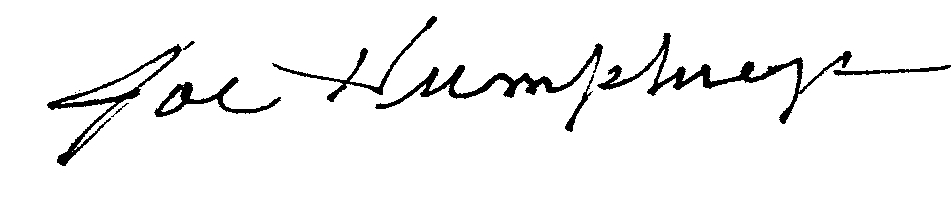 Joe Humphreys